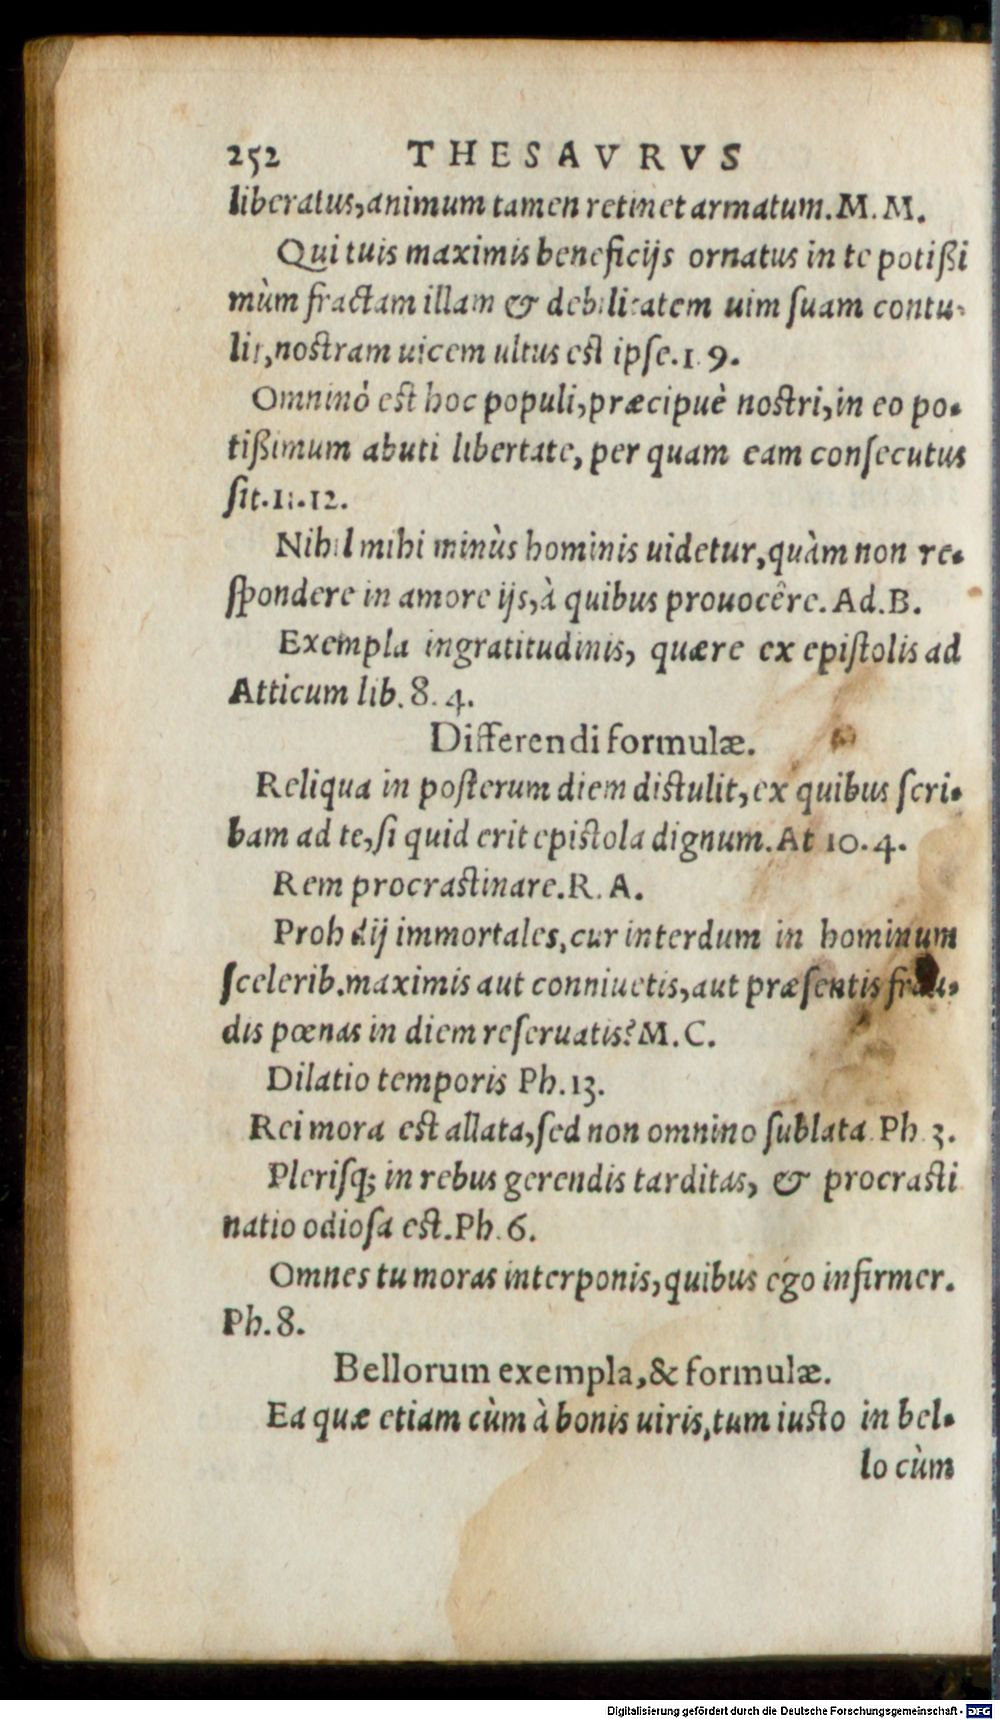 252 THESAVRVS
liberatus,animum tamen retinet armatum.M.M.
Qui tuis maximis beneficijs ornatus in te potißi
mùm fractam illam & debilitatem uim ſuam contu-
lit,nostram uicem ultus est ipſe.1.9.
Omninò est hoc populi,præcipuè nostri,in eo po-
tißimum abuti libertate, per quam eam conſecutus
ſit.11.12.
Nihil mihi minùs hominis uidetur,quàm non re-
ſpondere in amore ijs,à quibus prouocêre. Ad.B.
Exempla ingratitudinis, quære ex epiſtolis ad
Atticum lib. 8. 4.
Differendi formulæ.
Reliqua in poſterum diem distulit,ex quibus ſcri-
bam ad te,ſi quid erit epistola dignum.At 10.4.
Rem procrastinare.R.A.
Proh dij immortales,cur interdum in hominum
ſcelerib.maximis aut conniuetis,aut præſentis frau-
dis pœnas in diem reſeruatis?M.C.
Dilatio temporis Ph.13.
Rei mora est allata,ſed non omnino ſublata.Ph.3.
Pleriſq; in rebus gerendis tarditas, & procrasti
natio odioſa est.Ph.6.
Omnes tu moras interponis,quibus ego infirmer.
Ph.8.
Bellorum exempla,& formulæ.
Ea quæ etiam cùm à bonis uiris,tum iusto in bel-
lo cùm
Digitalisierung gefördert durch die Deutsche Forschungsgemeinschaft - DFG